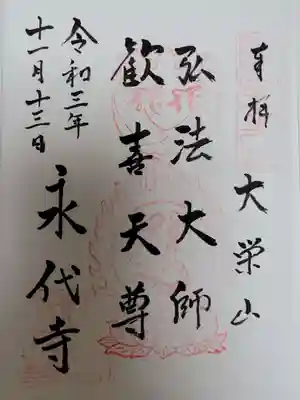 奉拝
大栄山
弘法大師
歓喜天尊
永代寺
令和三年
十一月十三日